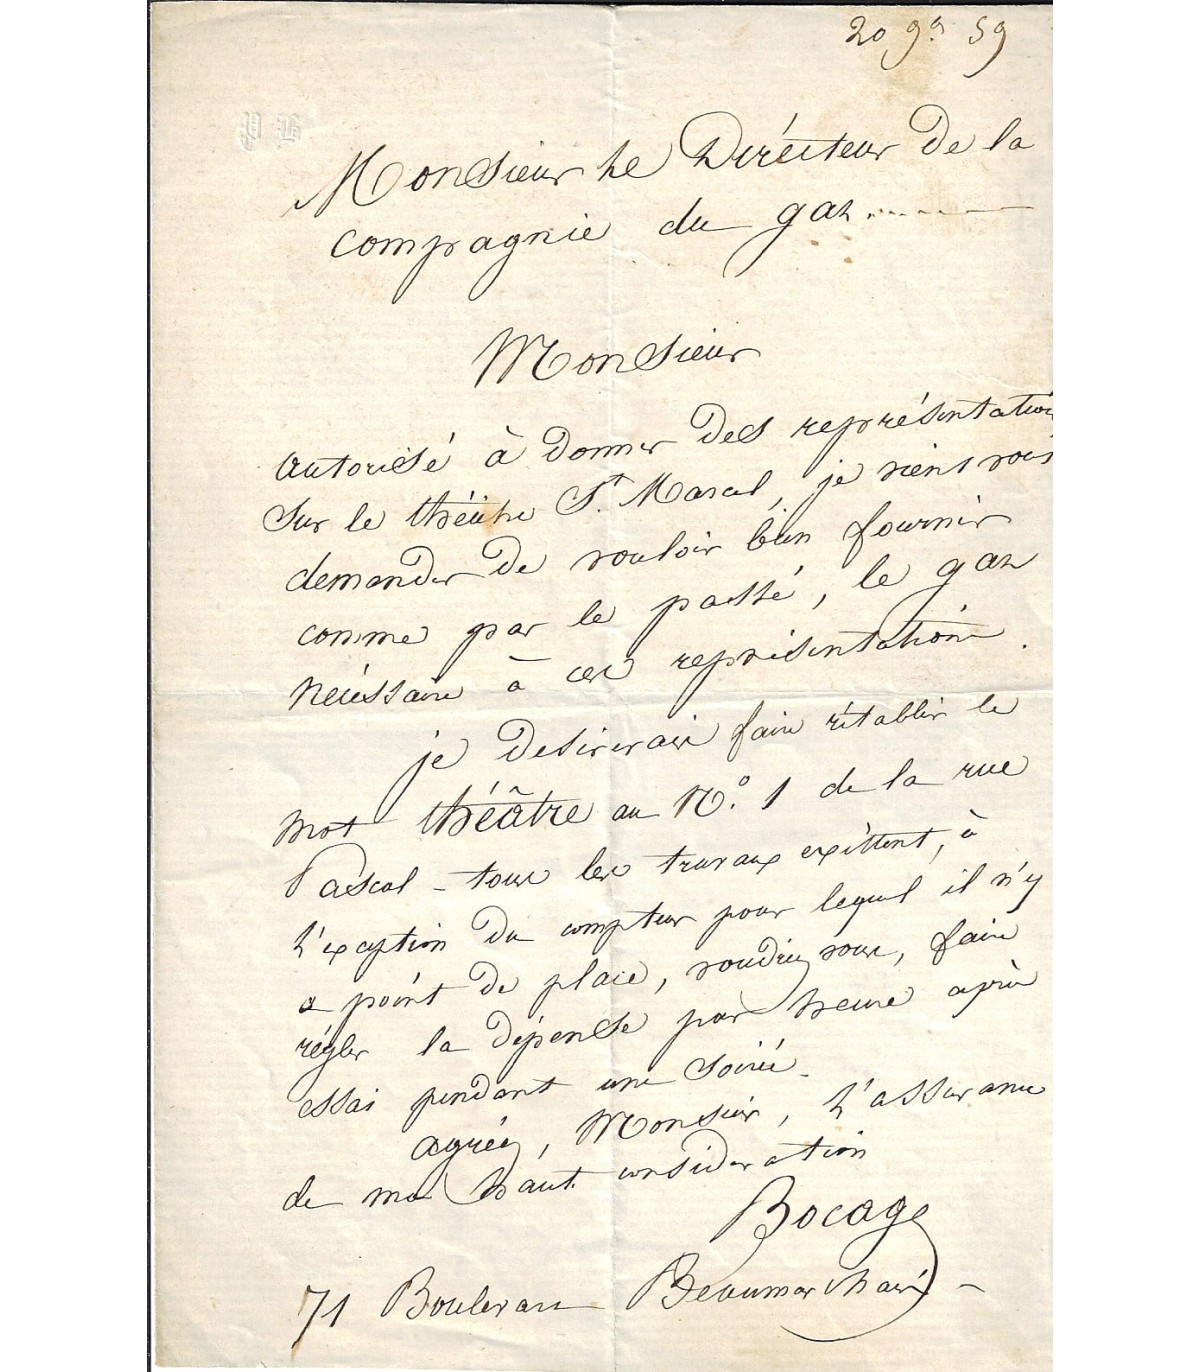 20 9bre 59
Monsieur Le Directeur de la
compagnie du gaz
Monsieur
autorisé à donner des représentation
sur le théâtre St Marcel, je viens vous
demander de vouloir bien fournir
comme par le passé, le gaz
nécessaire à ces représentations.
je desirerais faire rétablir le
mot théâtre au No. 1 de la rue
Pascal - tous les travaux existent, à
L'exception du compteur pour lequel il n'y
a point de place, voudriez vous, faire
régler la dépense par heure après
essai pendant une soirée.
agréez, Monsieur, L'assurance
de ma haute consideration
Bocage
71 Boulevard Beaumarchais